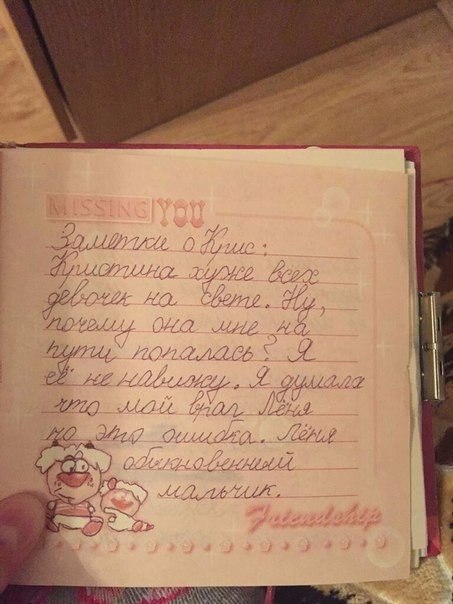 MISSING YOU
Заметки о Крис:
Кристина хуже всех
девочек на свете. Ну,
почему она мне на
пути попалась? Я
её не навижу. Я думала
что мой враг Лёня
но это ошибка. Лёня
обыкновенний
мальчик.
Friendship